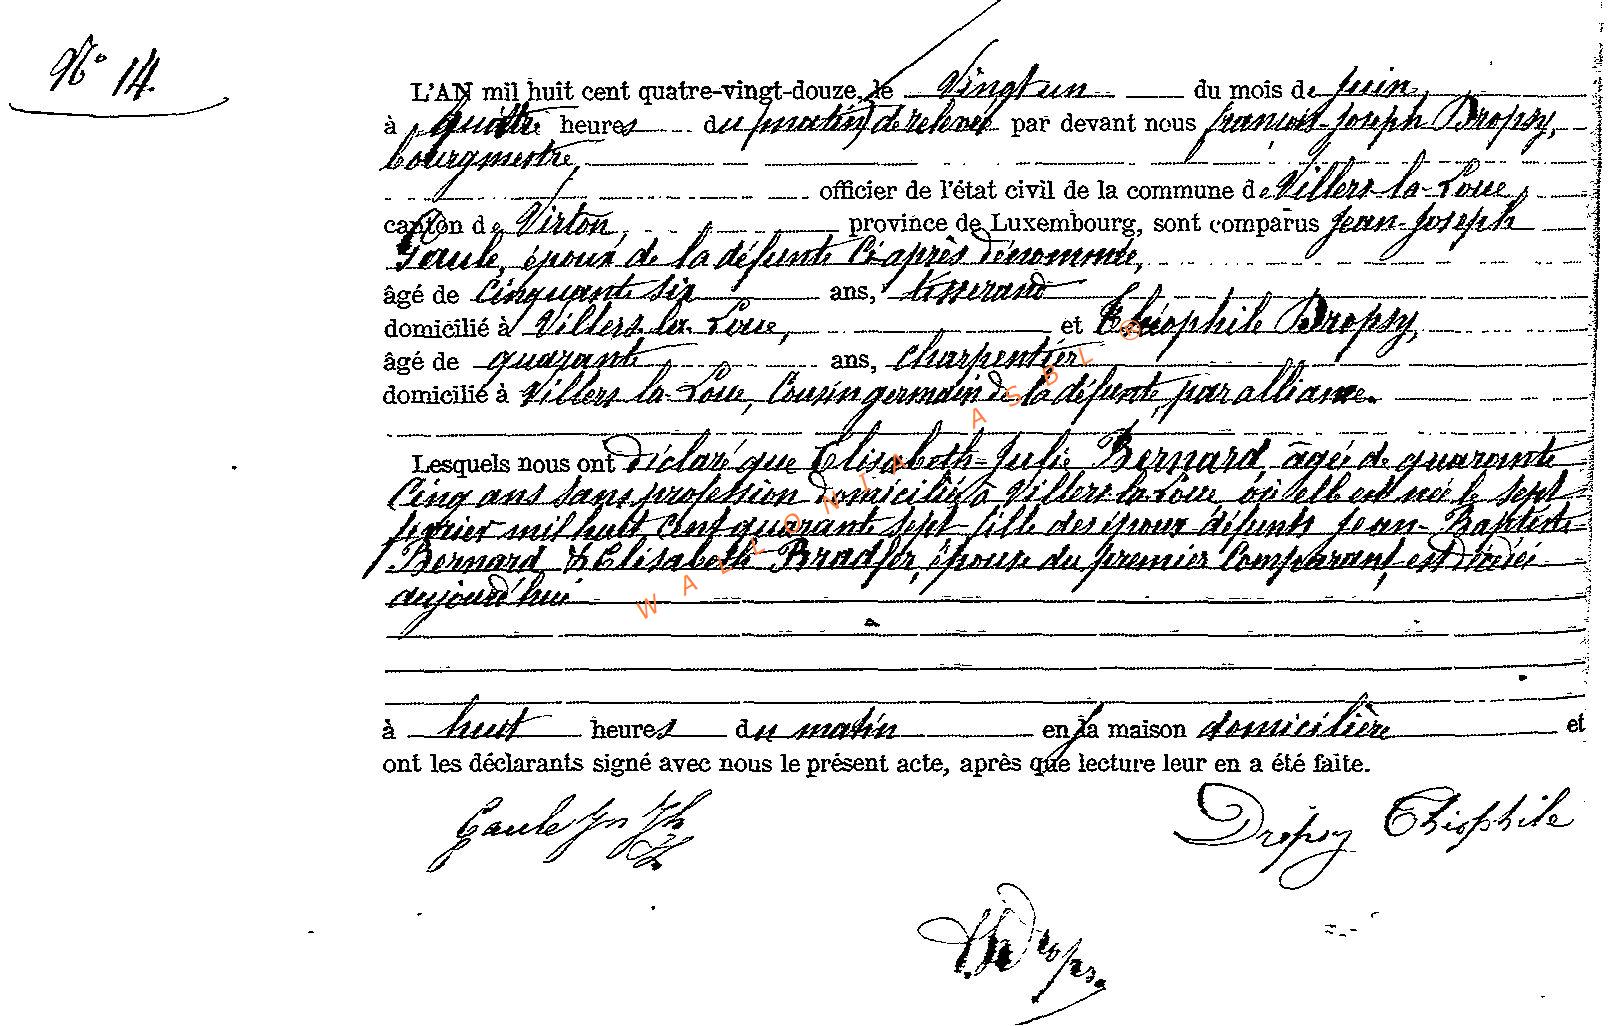 N° 14.
L'AN mil huit cent quatre-vingt-douze, le Vingt un du mois de juin,
à quatre heures du (matin) de relevée par devant nous françois-joseph Dropsy,
bourgmestre,
officier de l'état civil de la commune de Villers-la-Loue,
canton de Virton, province de Luxembourg, sont comparus jean-joseph
Gaule, époux de la défunte ci après dénommée,
âgé de cinquante six ans, tisserand
domicilié à Villers-la-Loue, et Théophile Dropsy,
âgé de quarante ans, charpentier
domicilié à Villers-la-Loue, cousin germain de la défunte, par alliance.
Lesquels nous ont déclaré que Elisabeth-Julie Bernard, âgée de quarante
cinq ans sans profession domiciliée à Villers-la-Loue où elle est née le sept
février mil huit cent quarante sept fille des époux défunts jean-Baptiste
Bernard & Elisabeth Bradfer, épouse du premier comparant, est décédée ici
aujourd'hui
à huit heures du matin en la maison domicilière et
ont les déclarants signé avec nous le présent acte, après que lecture leur en a été faite.
Gaule Jn Jh Dropsy Théophile
Dropsy
WALLONIA ASBL ©